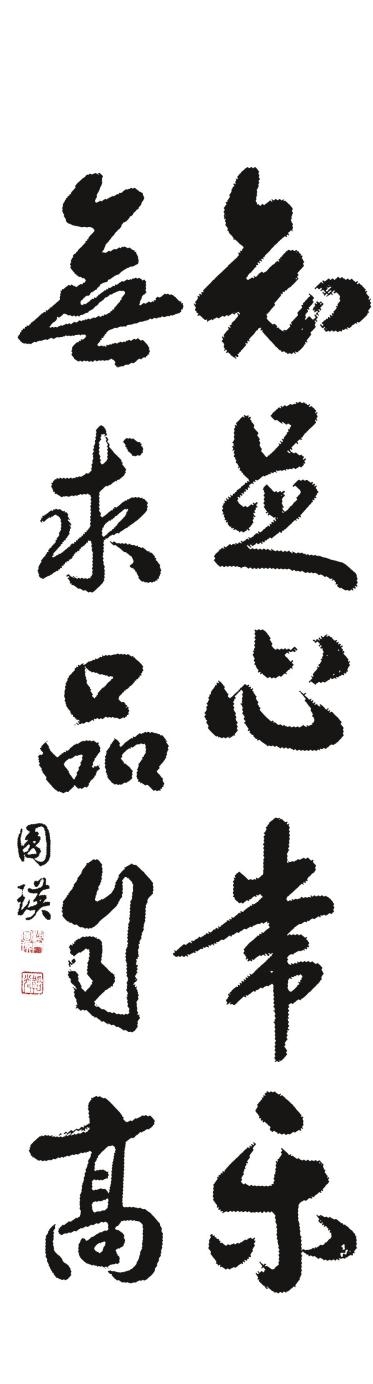 知足心常乐
無求品自高
圆瑛